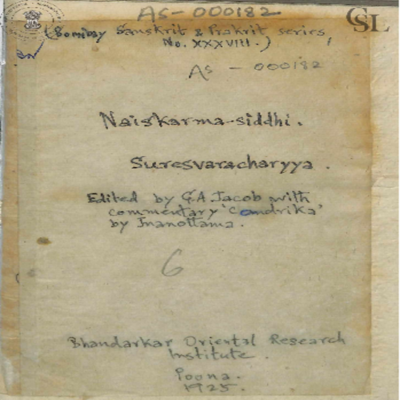 As-000182
(Bombay Sanskrit & Prakrit series,
No. XXXVIII.)
As - 000182
CSL
Naiskarma-siddhi.
Suresvaracharyya.
Edited by G.A. Jacob with
commentary 'Candrika'
by Jnanottama.
6
Bhandarkar Oriental Research
Institute.
Poona.
1925.